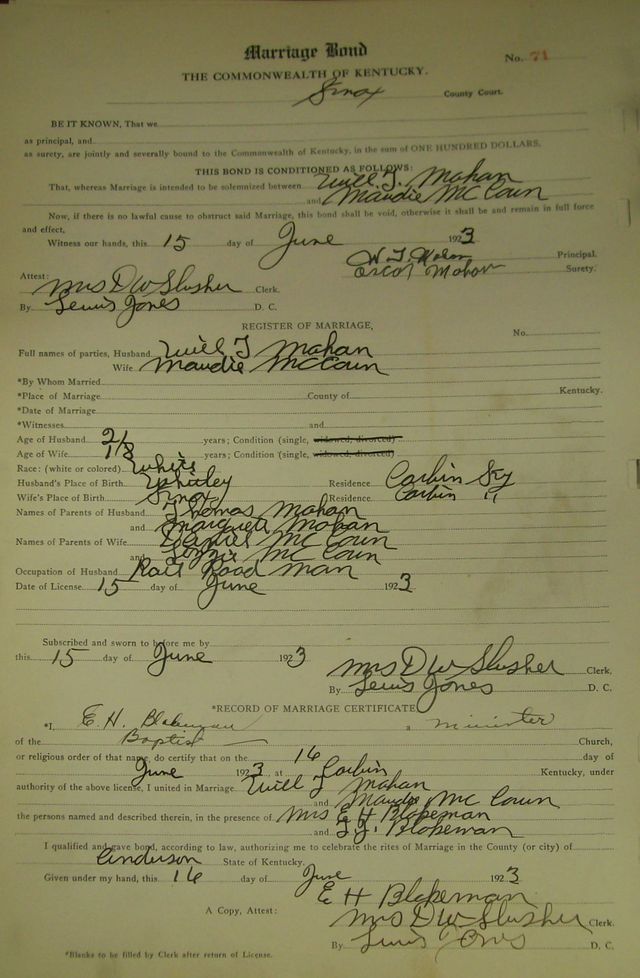 Marriage Bond
No. 71
THE COMMONWEALTH OF KENTUCKY.
Knox County Court.
BE IT KNOWN, That we
as principal, and
as surety, are jointly and severally bound to the Commonwealth of Kentucky, in the sum of ONE HUNDRED DOLLARS.
THIS BOND IS CONDITIONED AS FOLLOWS:
That, whereas Marriage is intended to be solemnized between Will T. Mahan
and Maudie McCoun
Now, if there is no lawful cause to obstruct said Marriage, this bond shall be void, otherwise it shall be and remain in full force
and effect,
Witness our hands, this 15 day of June 1923
W T Mahan Principal.
Oscar Mahan Surety.
Attest:
Mrs D W Slusher Clerk.
By Lewis Jones D. C.
REGISTER OF MARRIAGE,
No.
Full names of parties, Husband Will T Mahan
Wife Maudie McCoun
*By Whom Married
*Place of Marriage County of Kentucky.
*Date of Marriage
*Witnesses and
Age of Husband 21 years; Condition (single, widowed, divorced)
Age of Wife 18 years; Condition (single, widowed, divorced)
Race: (white or colored) White
Husband's Place of Birth Whitley Residence Corbin Ky
Wife's Place of Birth Knox Residence Corbin "
Names of Parents of Husband Thomas Mahan
and Margarett Mahan
Names of Parents of Wife Daniel McCoun
and McCoun
Occupation of Husband Rail Road man
Date of License 15 day of June 1923
Subscribed and sworn to before me by
this 15 day of June 1923
Mrs D W Slusher Clerk,
By Lewis Jones D. C.
*RECORD OF MARRIAGE CERTIFICATE
*I, E. H. Blakeman a minister
of the Baptist Church,
or religious order of that name, do certify that on the 16 day of
June 1923 at Corbin Kentucky, under
authority of the above license, I united in Marriage Will T Mahan
and Maudie McCoun
the persons named and described therein, in the presence of Mrs E H Blakeman
and Blakeman
I qualified and gave bond, according to law, authorizing me to celebrate the rites of Marriage in the County (or city) of
Anderson State of Kentucky.
Given under my hand, this 16 day of June 1923
E H Blakeman
A Copy, Attest: Mrs D W Slusher Clerk.
By Lewis Jones D. C.
*Blanks to be filled by Clerk after return of License.